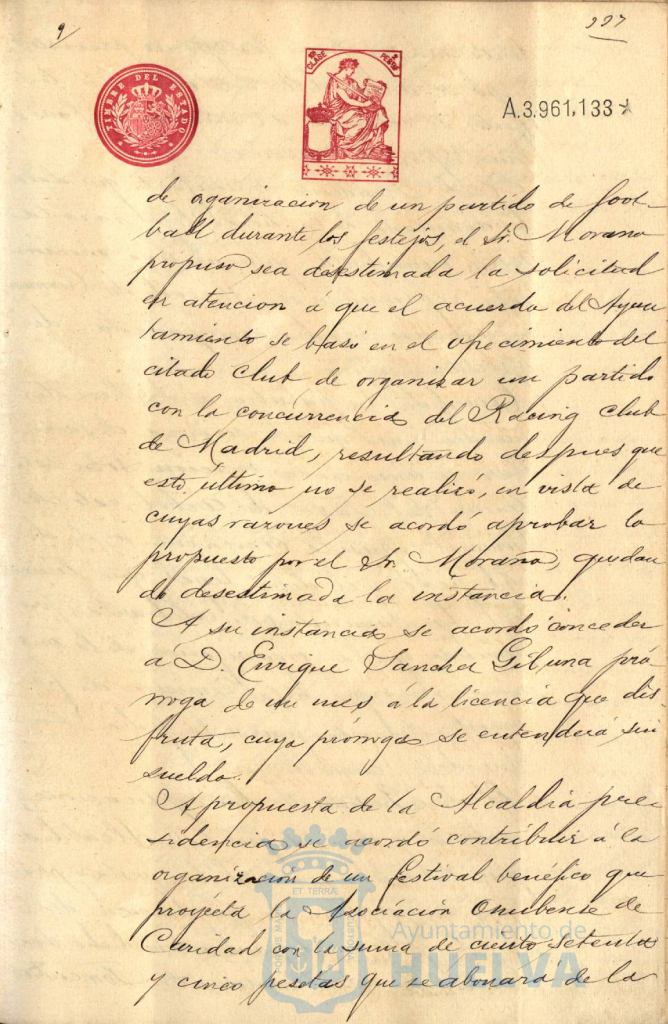 9
227
TIMBRE DEL ESTADO
CLASE
A.3.961,133
de organizacion de un partido de foot-
ball durante los festejos, el Sr. Morano
propuso sea desestimada la solicitud
en atencion á que el acuerdo del Ayun
tamiento se basó en el ofrecimiento del
citado Club de organizar un partido
con la concurrencia del Racing Club
de Madrid, resultando despues que
esto último no se realizó, en vista de
cuyas razones se acordó aprobar lo
propuesto por el Sr. Morano, quedan
do desestimada la instancia.
A su instancia se acordó conceder
á D. Enrique Sancha Gil una pró
rroga de un mes á la licencia que dis-
fruta, cuya prórroga se entenderá sin
sueldo.
A propuesta de la Alcaldia-pre
sidencia se acordó contribuir á la
organizacion de un festival benéfico que
proyecta la Asociación Onubense de
Caridad con la suma de ciento setenta
y cinco pesetas que se abonará de la
Ayuntamiento de
HUELVA